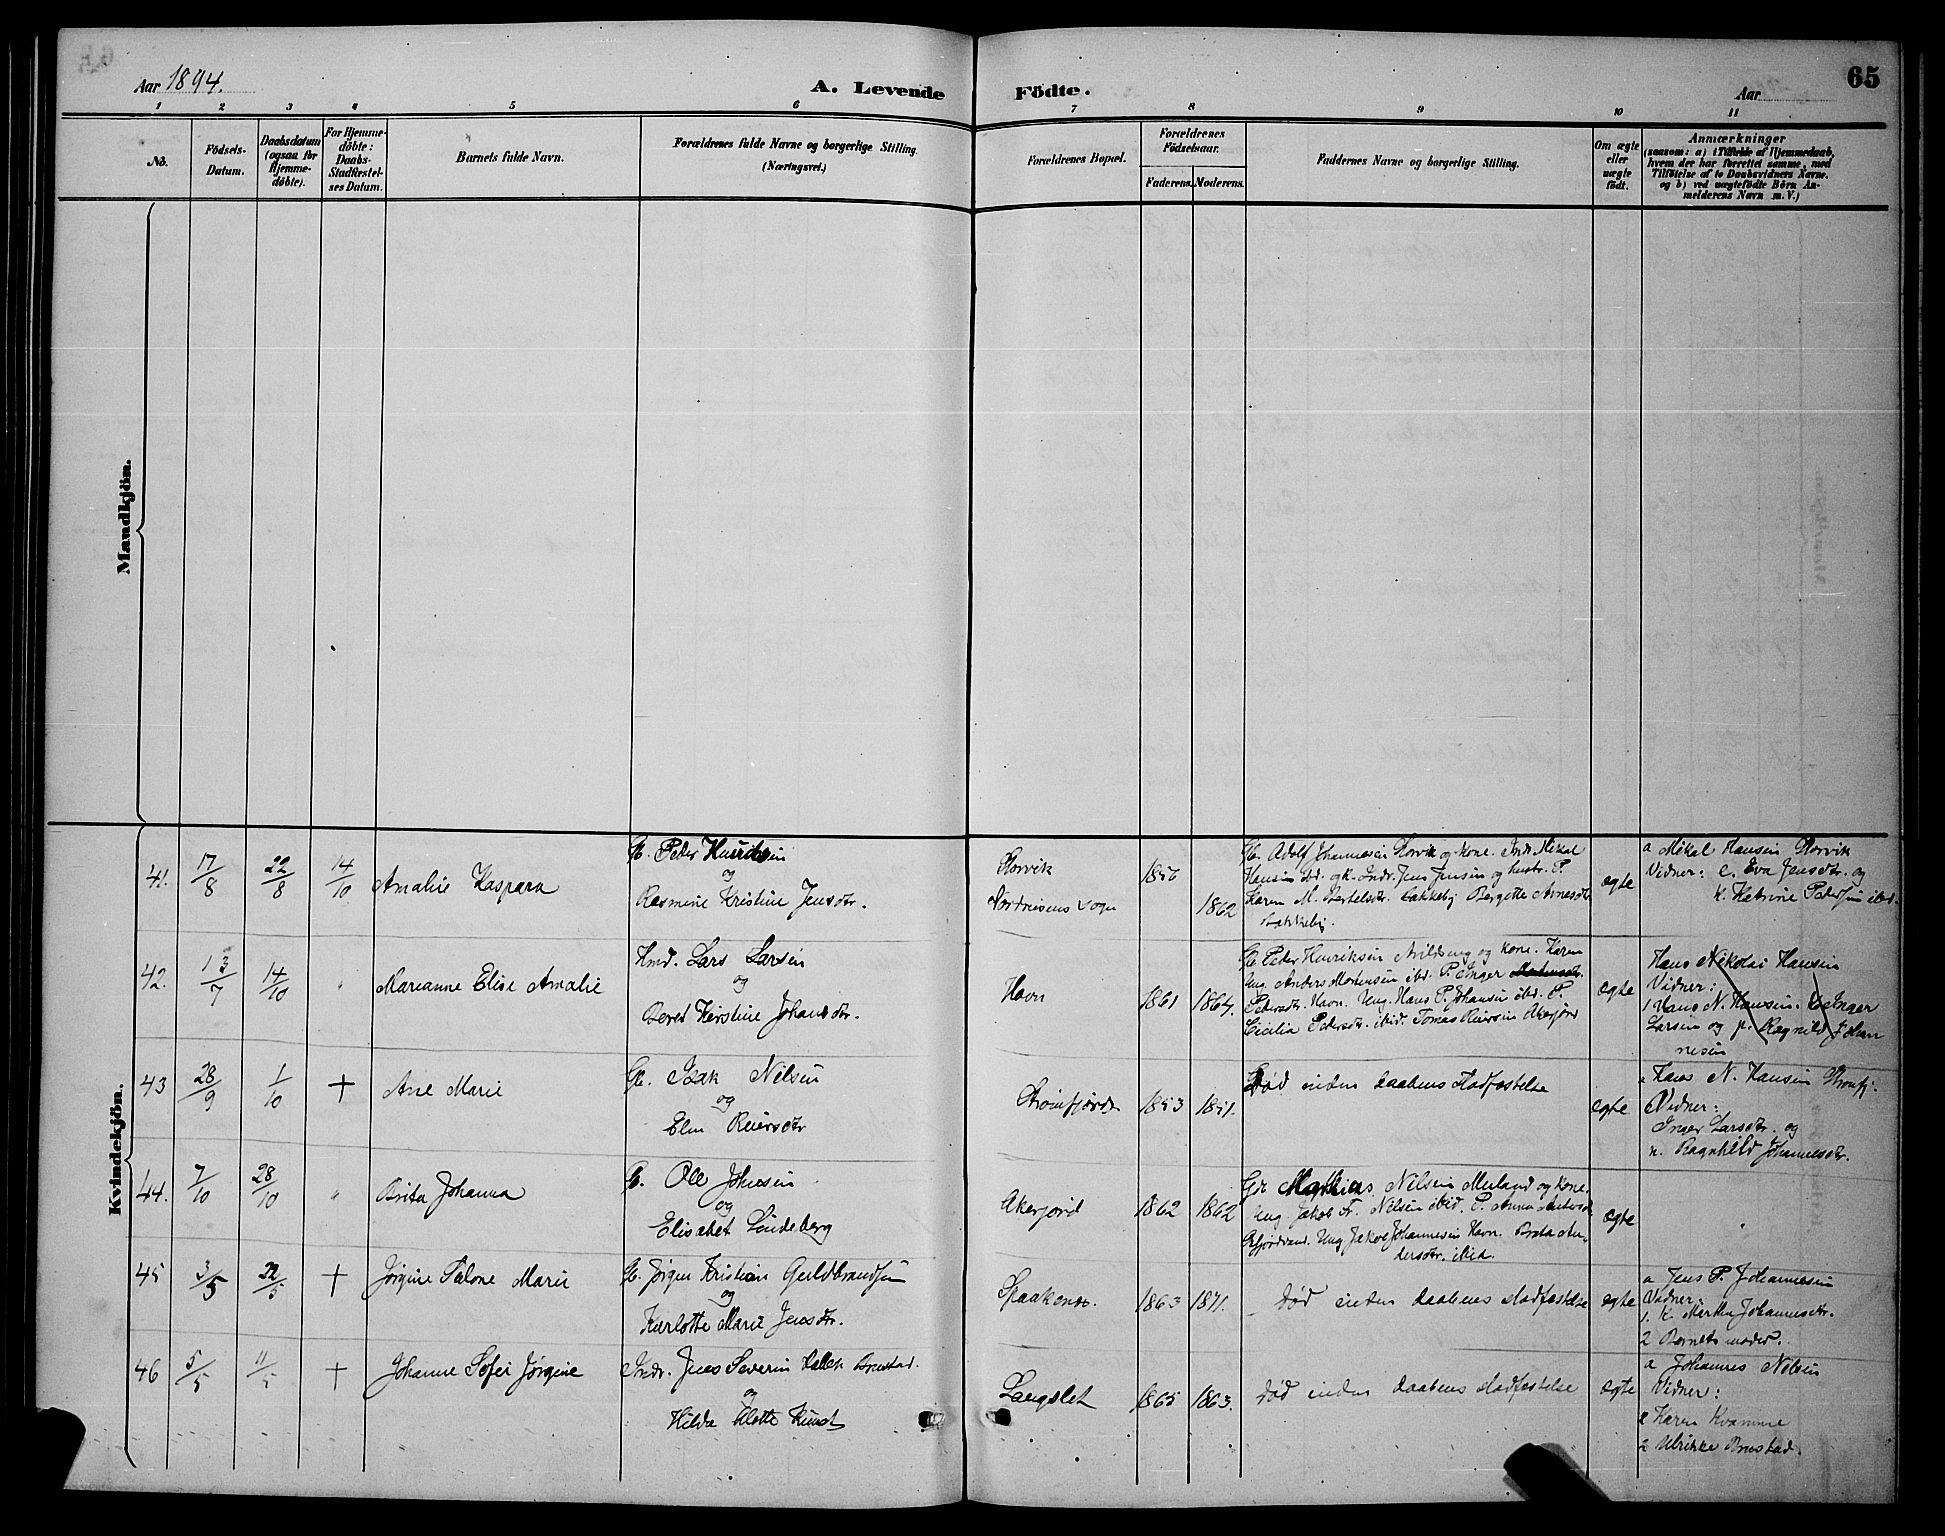 Aar 1894.
A. Levende Födte.
Aar
65
1 2 3 4 5 6 7 8 9 10 11
No.
Födsels-
Datum.
Daabsdatum
(ogsaa for
Hjemme-
döbte).
For Hjemme-
döbte:
Daabs-
Stadfæstel-
ses Datum.
Barnets fulde Navn.
Forældrenes fulde Navne og borgerlige Stilling.
(Næringsvei.)
Forældrenes Bopæl.
Forældrenes
Födselsaar.
Faderens. Moderens.
Faddernes Navne og borgerlige Stilling.
Om ægte
eller
uægte
födt.
Anmærkninger
(saasom: a) i Tilfælde af Hjemmedaab,
hvem der har forrettet samme, med
Tilföielse af to Daabsvidners Navne.
og b) ved uægtefödte Börn An-
melderens Navn m. V.)
Mandkjön.
Kvindekjön.
41. 17/8 22/8 14/10 Amalie Kaspara
G. Peder
og
Rasmine Kristine Jensdtr.
Storvik
Nordreisens Sogn
1856 1862
G. Adolf Johannesen Storvik og kone. Indr. Mikal
Hansen ibd. og k. Indr. Jens Jensen og hustr. P.
Karen M. Bertelsdtr. Bakkeby Bergette Arnesdtr.
Bakkeby.
ægte
a Mikal Hansen Storvik
Vidner: e. Eva Jensdtr. og
k. Katrine Pedersen ibd.
42. 13/7 14/10 " Marianne Elise Amalie
Hmd. Lars Larsen
og
Beret Kirstine Johansdtr.
Havn
1861 1864.
G. Peder Henriksen og kone. Karen
Ung. Anders Mortensen ibd. P. Inger
Pedersdtr. Havn. Ung. Hans P. Johansen ibd. P.
Cecilia Pedersdtr. ibid. Tomas Reiersen Akerjord
ægte
Hans Nikolai Hansen
Vidner:
1 Hans N. Hansen. Inger
Larsen og p. Ragnild Johan
nesen
43 28/9 1/10 + Ane Marie
G. Isak Nilsen
og
Elen Reiersdtr
Straumfjord
1853 1851.
Död inden daabens stadfæstelse
ægte
a Hans N. Hansen
Vidner:
Inger Larsdtr. og
n. Ragnhild Johannesdtr.
44. 7/10 28/10 " Brita Johanna
G. Ole Johnsen
og
Elisabet Lindeberg
Akerjord
1862 1862
Gdr Mathias Nilsen Meiland og kone.
Ung Jakob Fr. Nilsen ibid. P. Anna
Ung Jakob Johannesen Havn. Brita An-
dersdtr. ibid.
ægte
"
45 3/5 22/5 + Jörgine Talone Marie
G. Jörgen Kristian Guldbrandsen
og
Karlotte Marie Jensdtr.
Spaakenæs.
1863 1871.
Död inden daabens stadfæstelse
ægte
a Jens P. Johannesen
Vidner
1. K. Marthe Johannesdtr.
2 Barnets moder.
46 5/5 11/5 + Johanne Sofie Jörgine
Indr. Jens Severin Hallen Brustad.
og
Hilda Elotte
Langslet
1865 1863.
Död inden daabens stadfæstelse
ægte
a Johannes Nilsen
Vidner:
1 Karen Kvamme
2 Ulrikke Brustad.